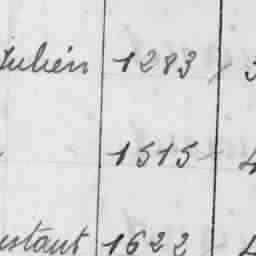 Julien 1283 3
1515 4
ustant 1622 4